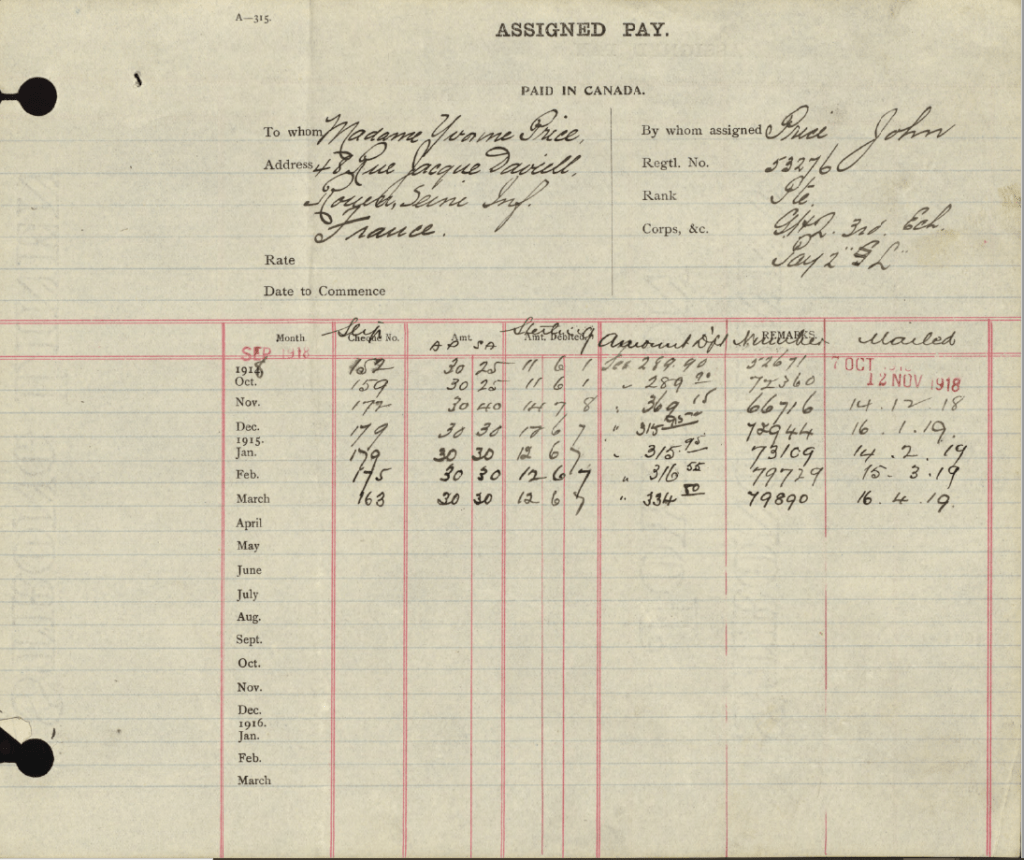 A—315.
ASSIGNED PAY.
PAID IN CANADA.
To whom Madame Yvonne Price,
Address 48 Rue Jacque Daviell,
Rouen, Seine Inf.
France.
Rate
Date to Commence
By whom assigned Price John
Regtl. No. 53276
Rank Pte.
Corps, &c. GHQ. 3rd. Ech.
Pay 2 "G L"
Month Slip Cheque No. Amt. AP SA Sterling Amt. Debited Amount Dft Number REMARKS. Mailed
SEP 1918
1918 152 30 25 11 6 1 289.90 52671 7 OCT
Oct. 159 30 25 11 6 1 " 289 72360 12 NOV 1918
Nov. 172 30 40 14 7 8 " 369 15 66716 14.12 18
Dec. 179 30 30 6 7 " 315 72944 16.1.19.
1915.
Jan. 179 30 30 12 6 7 " 315 95 73109 14.2.19
Feb. 175 30 30 12 6 7 " 316 55 79729 15-3.19
March 163 30 30 12 6 7 " 334 50 79890 16.4.19.
April
May
June
July
Aug.
Sept.
Oct.
Nov.
Dec.
1916.
Jan.
Feb.
March